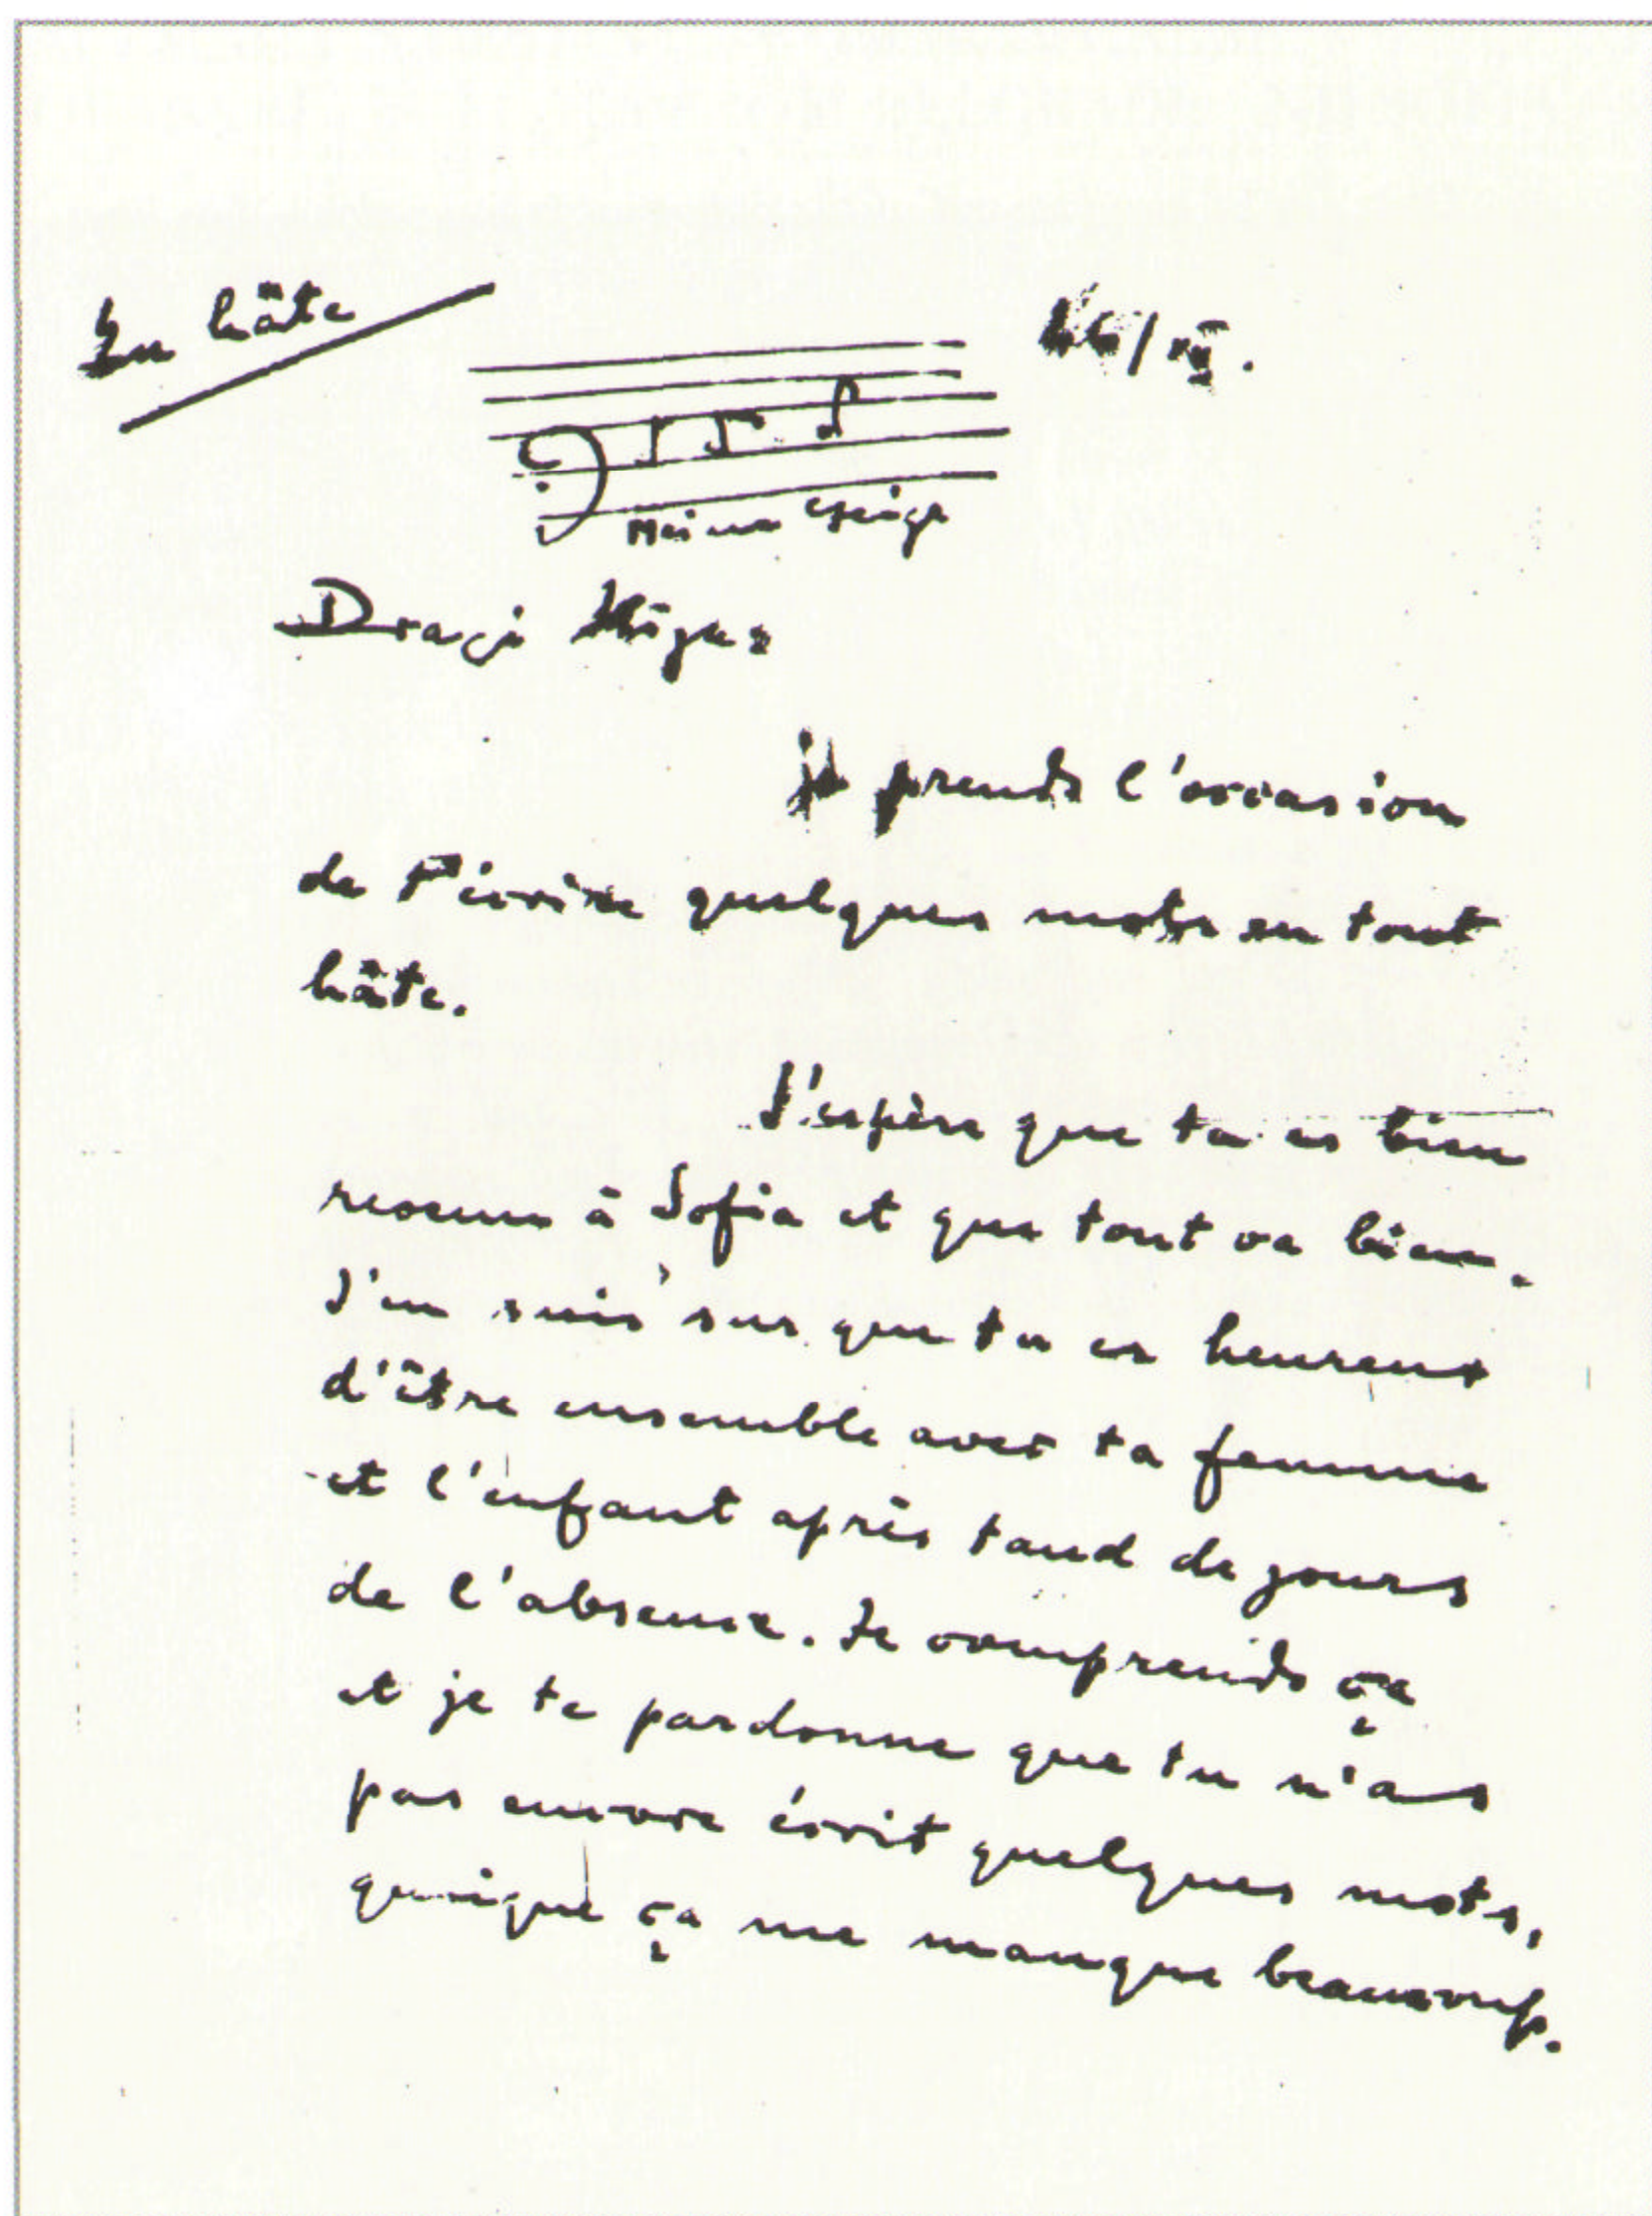 En hâte
Dragi
je prends l'occasion
de t'écrire quelques mots en tout
hâte.
J'espère que tu es bien
revenu à Sofia et que tout va bien.
J'en suis sur que tu es heureux
d'être ensemble avec ta femme
et l'enfant après tand de jours
de l'absence. Je comprends ça
et je te pardonne que tu n'as
pas encore écrit quelques mots,
quoique ça me manque beaucoup.